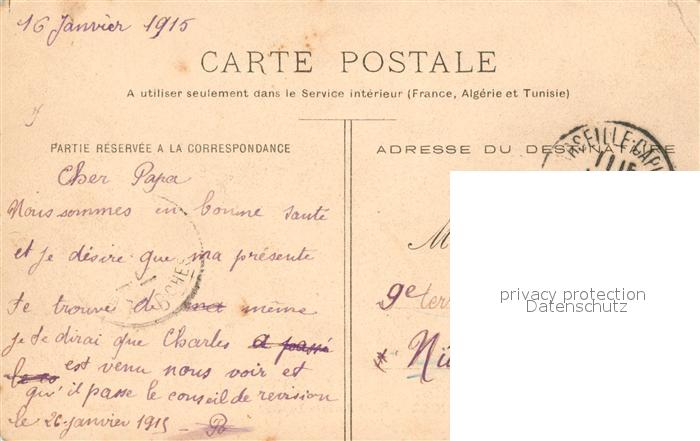 16 Janvier 1915
CARTE POSTALE
A utiliser seulement dans le Service intérieur (France, Algérie et Tunisie)
PARTIE RÉSERVÉE A LA CORRESPONDANCE
ADRESSE DU DESTINATAIRE
Cher Papa
Nous sommes en bonne santé
et je désire que ma présente
te trouve de même
je te dirai que Charles a passé
est venu nous voir et
qu'il passe le conseil de revision
le 26 janvier 1915
M
9e terr
Nî
privacy protection
Datenschutz